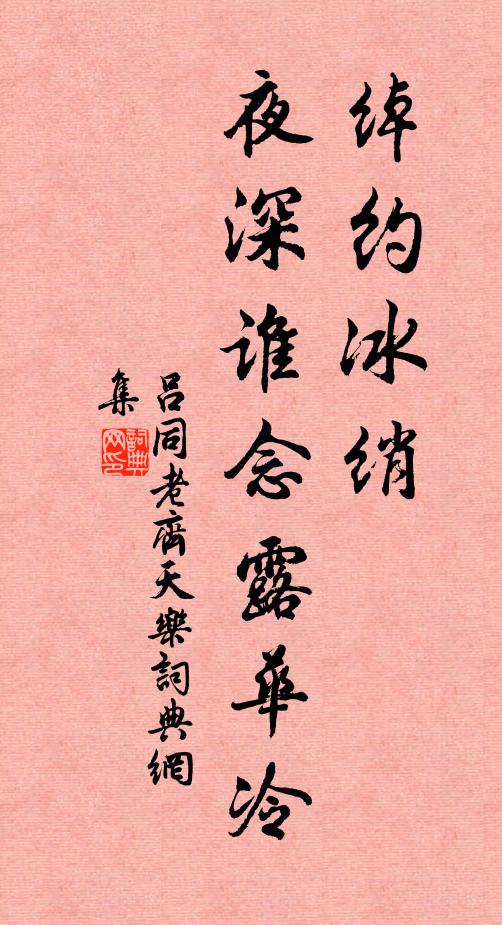 绰约冰绡
夜深谁念露华冷
吕同老齊天樂詞典網
集
詞典网印